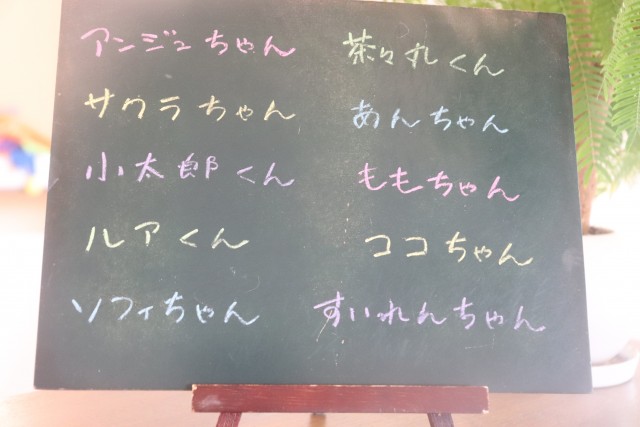 アンジュちゃん
サクラちゃん
小太郎くん
ルアくん
ソフィちゃん
茶々丸くん
あんちゃん
ももちゃん
ココちゃん
すいれんちゃん